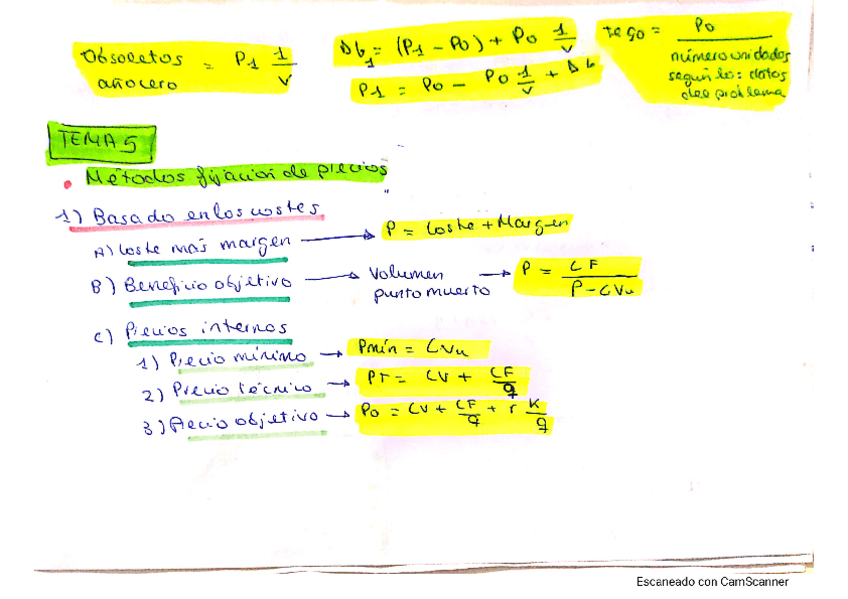 Obsoletos año cero = P1 1/v
Db1 = (P1 - P0) + P0 1/v
P1 = P0 - P0 1/v + Db
tego = P0 / número unidades según los datos del problema
TEMA 5
• Métodos fijación de precios
1) Basado en los costes
A) Coste más margen → P = Coste + Margen
B) Beneficio objetivo → Volumen punto muerto → P = CF / P - CVu
C) Precios internos
1) Precio mínimo → Pmín = CVu
2) Precio técnico → PT = CV + CF/q
3) Precio objetivo → Po = CV + CF/q + r K/q
Escaneado con CamScanner